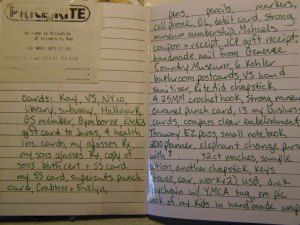 PRICE RITE
Welcome to PriceRite
of University Ave
cards: Kay, VS, NY+Co
library, subway, Hallmark,
GS member, Gymboree, 
gift card to Javas, 4 health
ins. cards, my glasses Rx,
my sons glasses Rx, copy of
sons birth cert + SS card
my SS card, supercuts punch
card, Crabtree + Evelyn,
pens, pencils, markers,
cell phone, DL, debit card, Strong
museum membership, Michaels
coupon + receipt, JE gift receipt,
handmade nail from Genesee
Country Museum, 6 Kohler
bathroom postcards, VS hand
sanitizer, Rite Aid chapstick,
4.25MM crochet hook, Strong museum
carousel punch card, 13 my business
cards, compass clear embellishment,
Thruway EZ pass, small note book
2010 planner, elephant change purse
with 32ct moches, sample
lotion, another chapstick, keys
house, car, work x2), USB, duck
keychain w/ YMCA tag, sm pic
book of my kids in hand made wrap